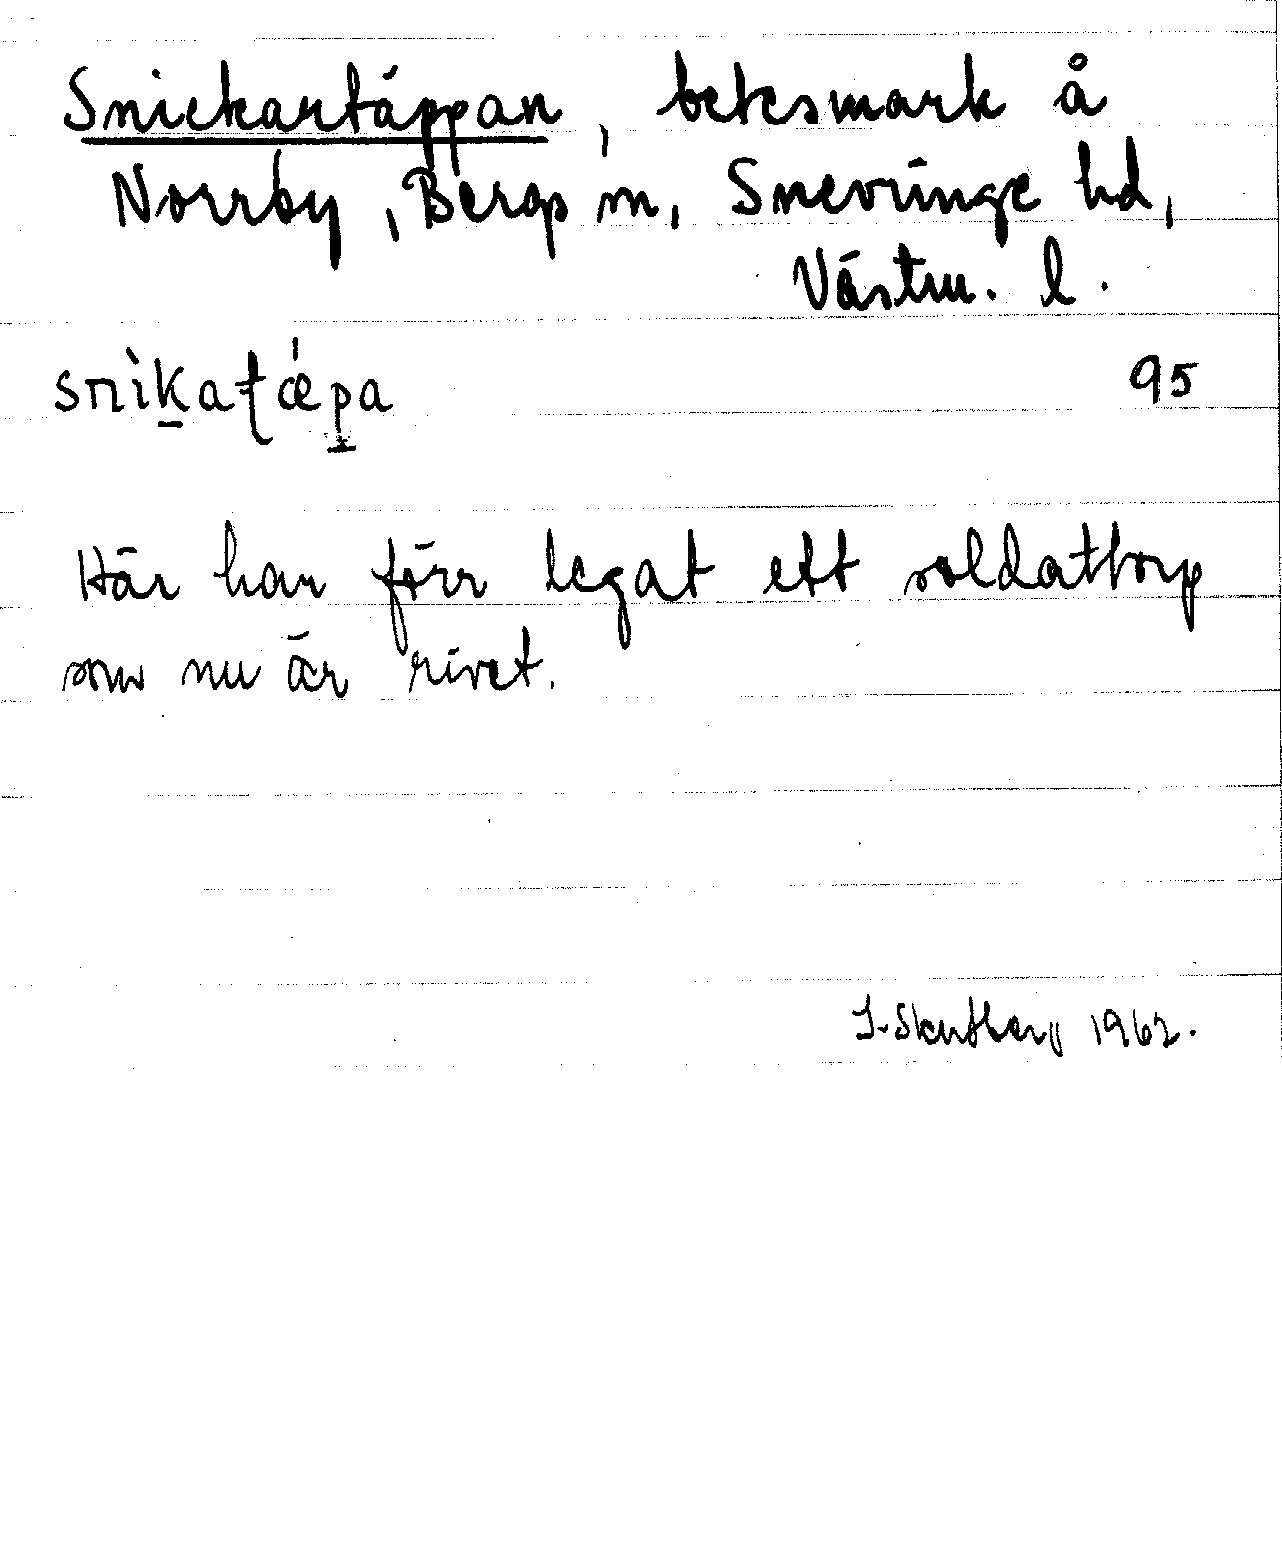 Snickartäppan, betesmark å
Norrby, Bergs sn, Snevringe hd,
Västm. l.
snìḵaʈǽp̱a 95
Här har förr legat ett soldattorp
som nu är rivet.
1962.